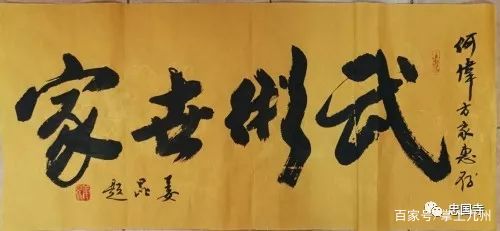 何偉方家惠存
武術世家
姜昆題
百家号/掌上九州
忠国寺